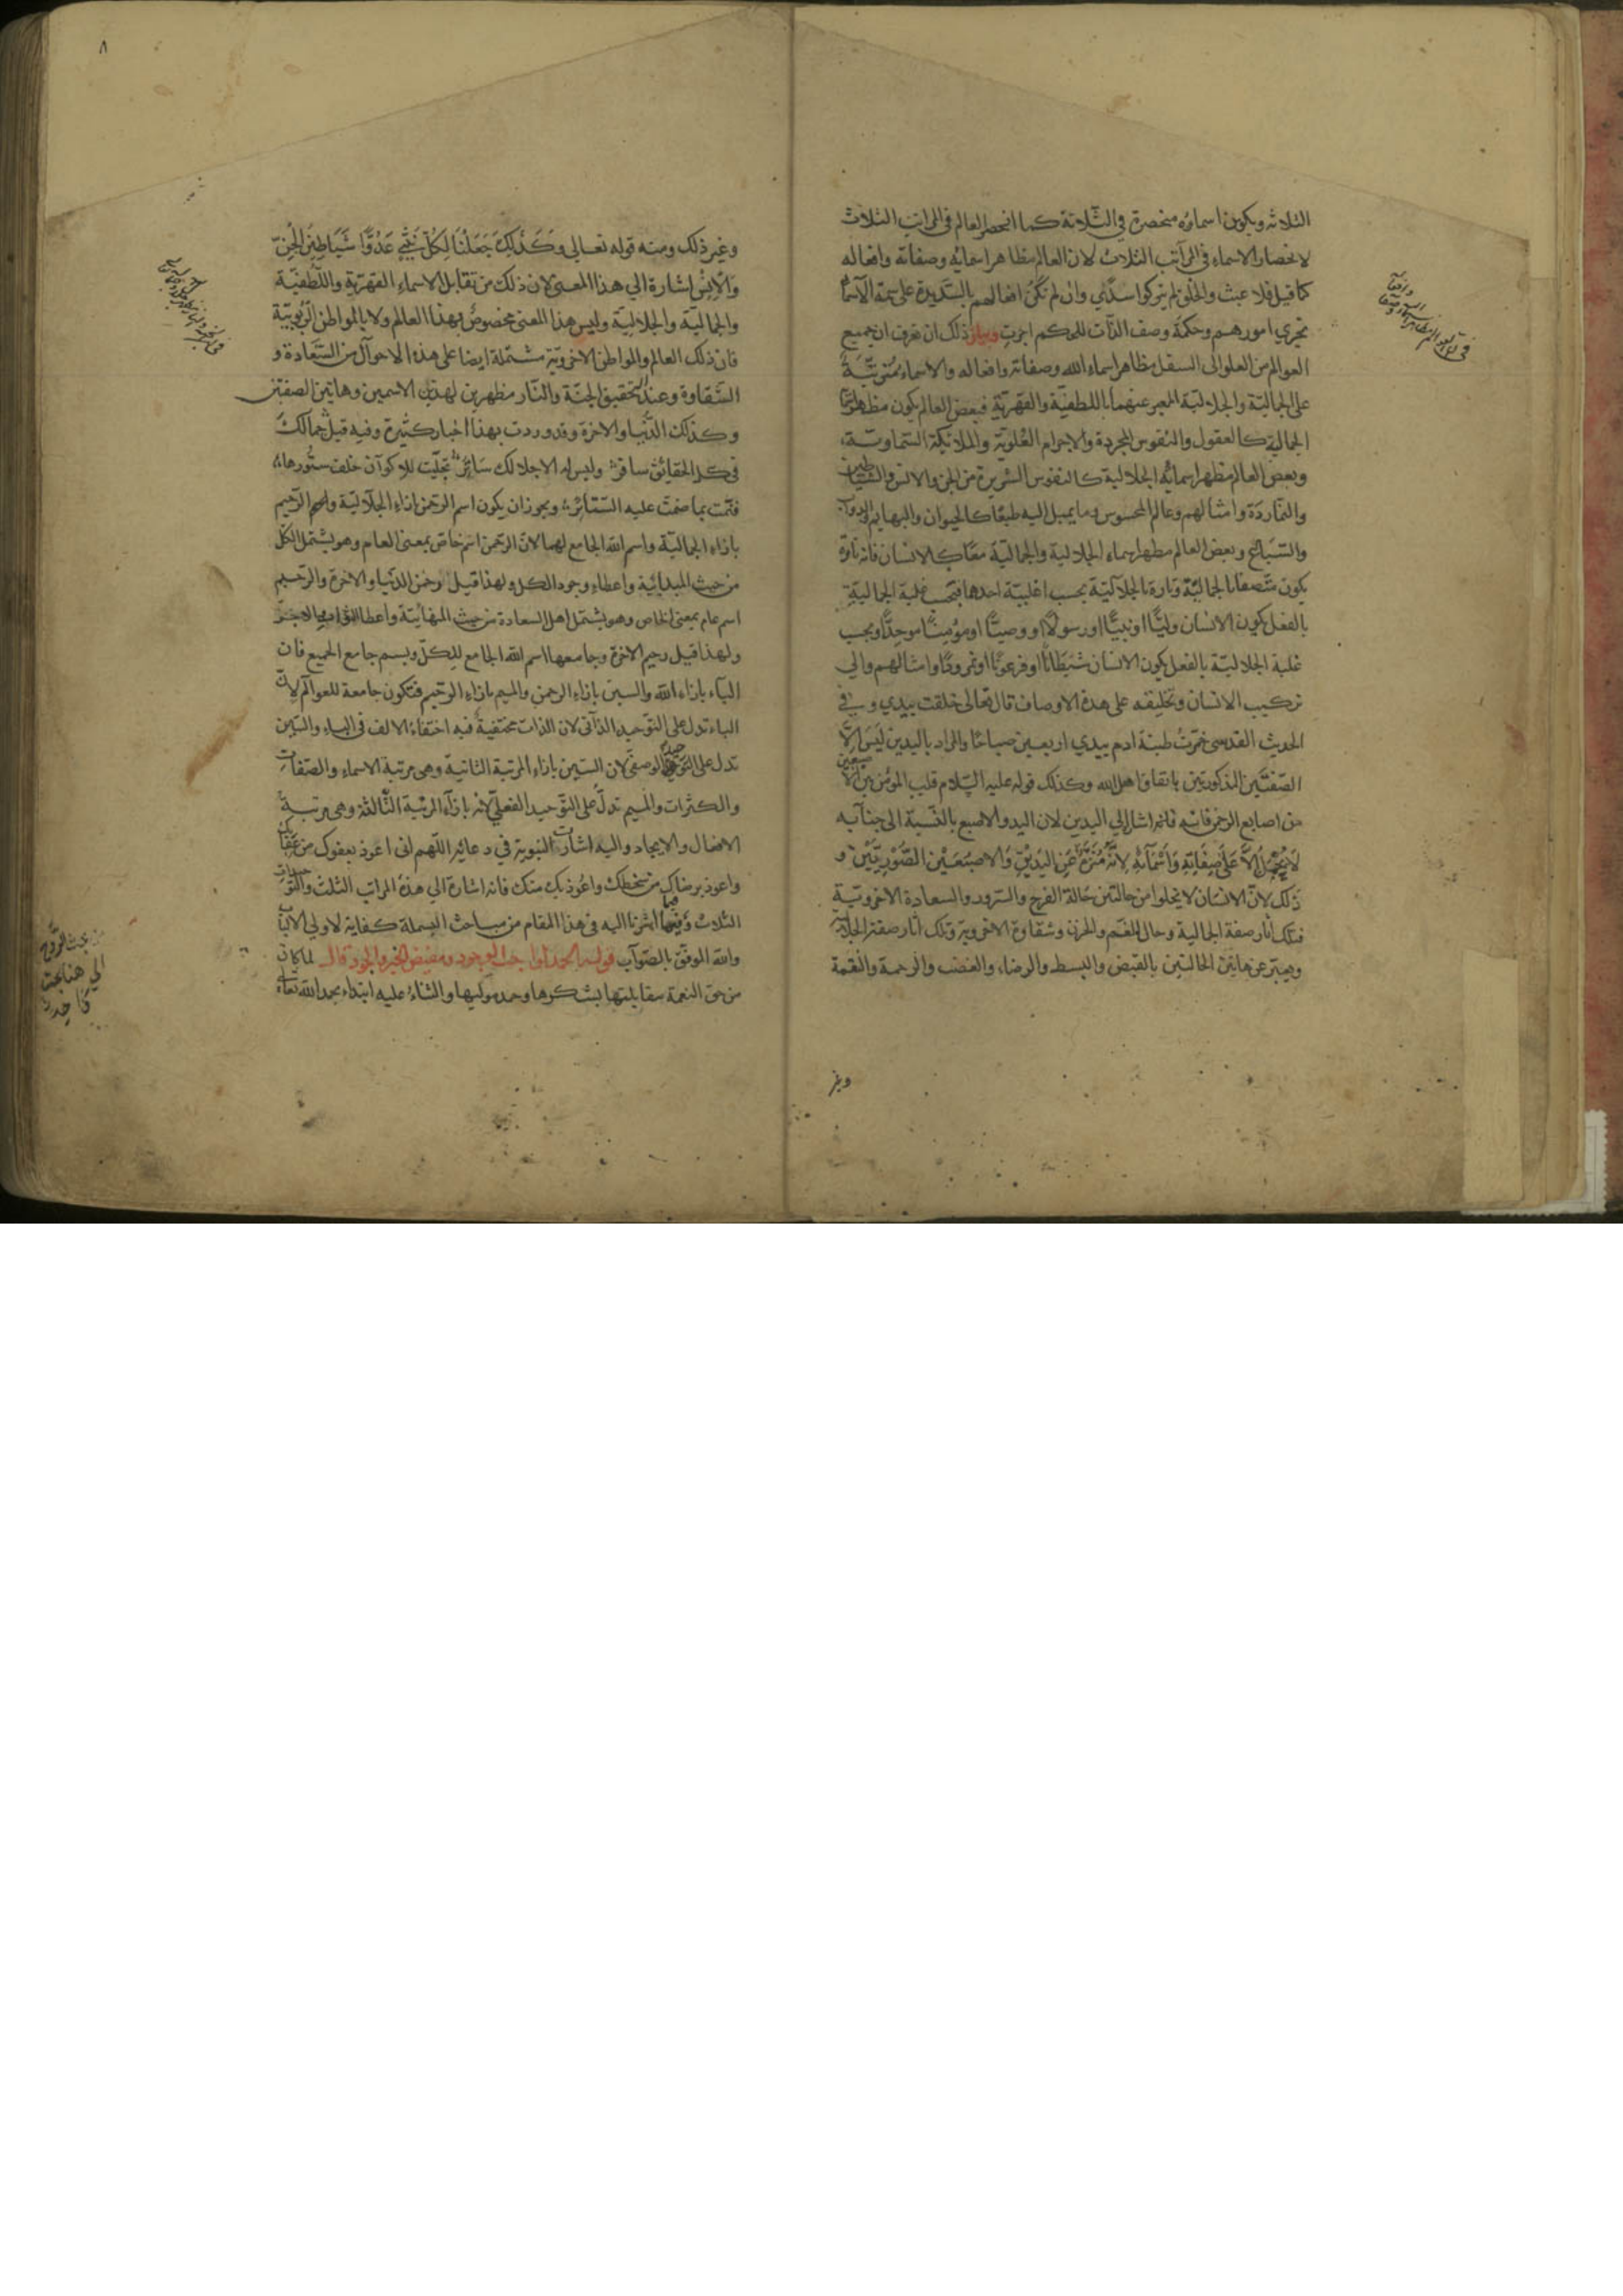 الثلاثه ويكون اسماؤه منحصرة في الثلاثة كما انحصر العالم في المراتب الثلاث
لانحصار الاسماء في المراتب الثلاث لان العالم مظاهر اسمائه وصفاته وافعاله
كما قيل فلا عبث والخلق لم يتركوا سدًي وان لم تكن افعالهم بالسديدة على سمة الاسماء
تجري امورهم وحكمة وصف الذات للحكم اجرت وبيان ذلك ان تعرف ان جميع
العوالم من العلو الى السفل مظاهر اسماء الله وصفاته وافعاله والاسماء مترتبة
على الجمالية والجلالية المعبر عنهما باللطفية والقهرية فبعض العالم يكون مظهر اسمائه
الجمالية كالعقول والنفوس المجردة والاجرام العُلوية والملائكة السماوية
وبعض العالم مظهر اسمائه الجلالية كالنفوس الشريرة من الجن والانس والشياطين
والنماردة وامثالهم وعالم المحسوس وما يميل اليه طبعًا كالحيوان والبهايم والدواب
والسباع وبعض العالم مظهر اسماء الجلالية والجمالية معًا كالانسان فانه تارة
يكون متصفا بالجمالية وتارة بالجلالية بحسب اغلبية احدها فبحسب غلبة الجمالية
بالفعل يكون الانسان وليًّا او نبيًّا او رسولًا او وصيًّا او مؤمنًا موحدًا وبحسب
غلبة الجلالية بالفعل يكون الانسان شيطانًا او فرعونًا او نمرودًا وامثالهم والي
تركيب الانسان وتخليقه على هذه الاوصاف قال تعالى خلقت بيدي وفي
الحديث القدسي خمرت طينة ادم بيدي اربعين صباحًا والمراد باليدين ليس الّا
الصفتين المذكورتين باتفاق اهل الله وكذلك قوله عليه السلام قلب المؤمن بين الا صبعين
من اصابع الرحمن فانه اشار الي اليدين لان اليد والاصبع بالنسبة الى جنابه
لا يُحمل الّا على صفاته واسمائه لانه منزه عن اليدين والاصبعين الصوريتين و
ذلك لانّ الانسان لا يخلوا من حالتين حالة الفرح والسرور والسعادة الاخروية
فتلك آثار صفة الجمالية وحال الغم والحزن وشقاوة الاخروية وتلك آثار صفة الجلالية
ويعبر عن هاتين الحالتين بالقبض والبسط والرضاء والغضب والرحمة والنقمة
وغير
٨
وغير ذلك ومنه قوله تعالى وكذلك جعلنا لكل نبي عدوًّا شياطين الجنّ
والانس اشارة الي هذا المعنى لان ذلك من تقابل الاسماء القهرية واللطفية
والجمالية والجلالية وليس هذا المعنى مخصوص بهذا العالم ولا بالمواطن الربوبية
فان ذلك العالم والمواطن الاخروية مشتملة ايضا على هذه الاحوال من السعادة و
الشقاوة وعند التحقيق الجنة والنار مظهرين لهذين الاسمين وهاتين الصفتين
وكذلك الدنيا والاخرة وقد وردت بهذا اخبار كثيرة وفيه قيل جمالك
في كل الحقائق سافر وليس له الا جلالك ساتر تجلّيت للاكوان خلف ستورها
فنمّت بما ضمت عليه الستائر ويجوز ان يكون اسم الرحمن بازاء الجلالية واسم الرحيم
بازاء الجمالية واسم الله الجامع لهما لان الرحمن اسم خاص بمعنى العام وهو يشتمل الكل
من حيث المبدائية واعطاء وجود الكل ولهذا قيل رحمن الدنيا والاخرة والرحيم
اسم عام بمعنى الخاص وهو يشتمل اهل السعادة من حيث المنهائية واعطا الثواب والاجر
ولهذا قيل رحيم الاخرة وجامعها اسم الله الجامع للكل وبسم جامع الجميع فان
الباء بازاء الله والسين بازاء الرحمن والميم بازاء الرحيم فتكون جامعة للعوالم لانّ
الباء تدل على التوحيد الذاتى لان الذات مختفية فيه اختفاء الالف في الباء والسين
تدل على التوحيد الوصفي لان السين بازاء المرتبة الثانية وهى مرتبة الاسماء والصفات
والكثرات والميم تدل على التوحيد الفعلي لانه بازاء المرتبة الثالثة وهى مرتبة
الافعال والايجاد واليه اشارت النبوية في دعائه اللهم انى اعوذ بعفوك من عقابك
واعوذ برضاك من سخطك واعوذ بك منك فانه اشارة الي هذه المراتب الثلث والتوحيدات
الثلاث وفيما اشرنا اليه في هذا المقام من مباحث البسملة كفاية لاولي الالباب
والله الموفق بالصواب قوله الحمد لواجب الوجود ومفيض الخير والجود قال لما كان
من حق النعمة مقابلتها بشكرها وحد موليها والثناء عليه ابتداء بحمد الله تعالى
الي هنا بحث